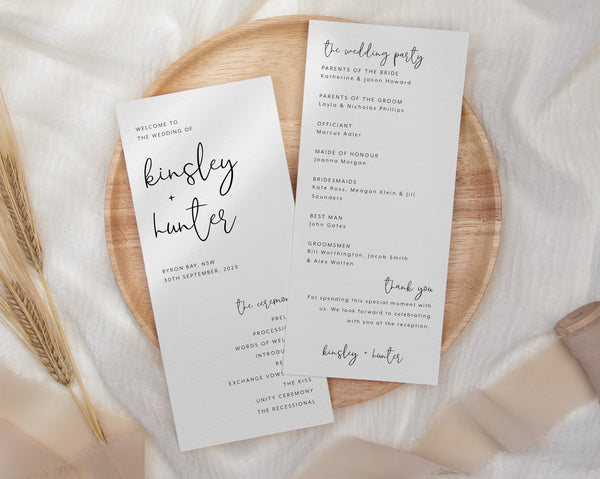 WELCOME TO
THE WEDDING OF
kinsley
+
hunter
BYRON BAY, NSW
30TH SEPTEMBER, 2023
the
WORDS OF
EXCHANGE VOWS
THE KISS
UNITY CEREMONY
THE RECESSIONAL
the wedding party
PARENTS OF THE BRIDE
Katherine & Jason Howard
PARENTS OF THE GROOM
Layla & Nicholas Phillips
OFFICIANT
Marcus Adler
MAIDE OF HONOUR
Joanna Morgan
BRIDESMAIDS
Kate Ross, Meagan Klein & Jill
Saunders
BEST MAN
John Gates
GROOMSMEN
Bill Worthington, Jacob Smith
& Alex Wolten
thank you
For spending this special moment with
us. We look forward to celebrating
with you at the reception.
kinsley + hunter